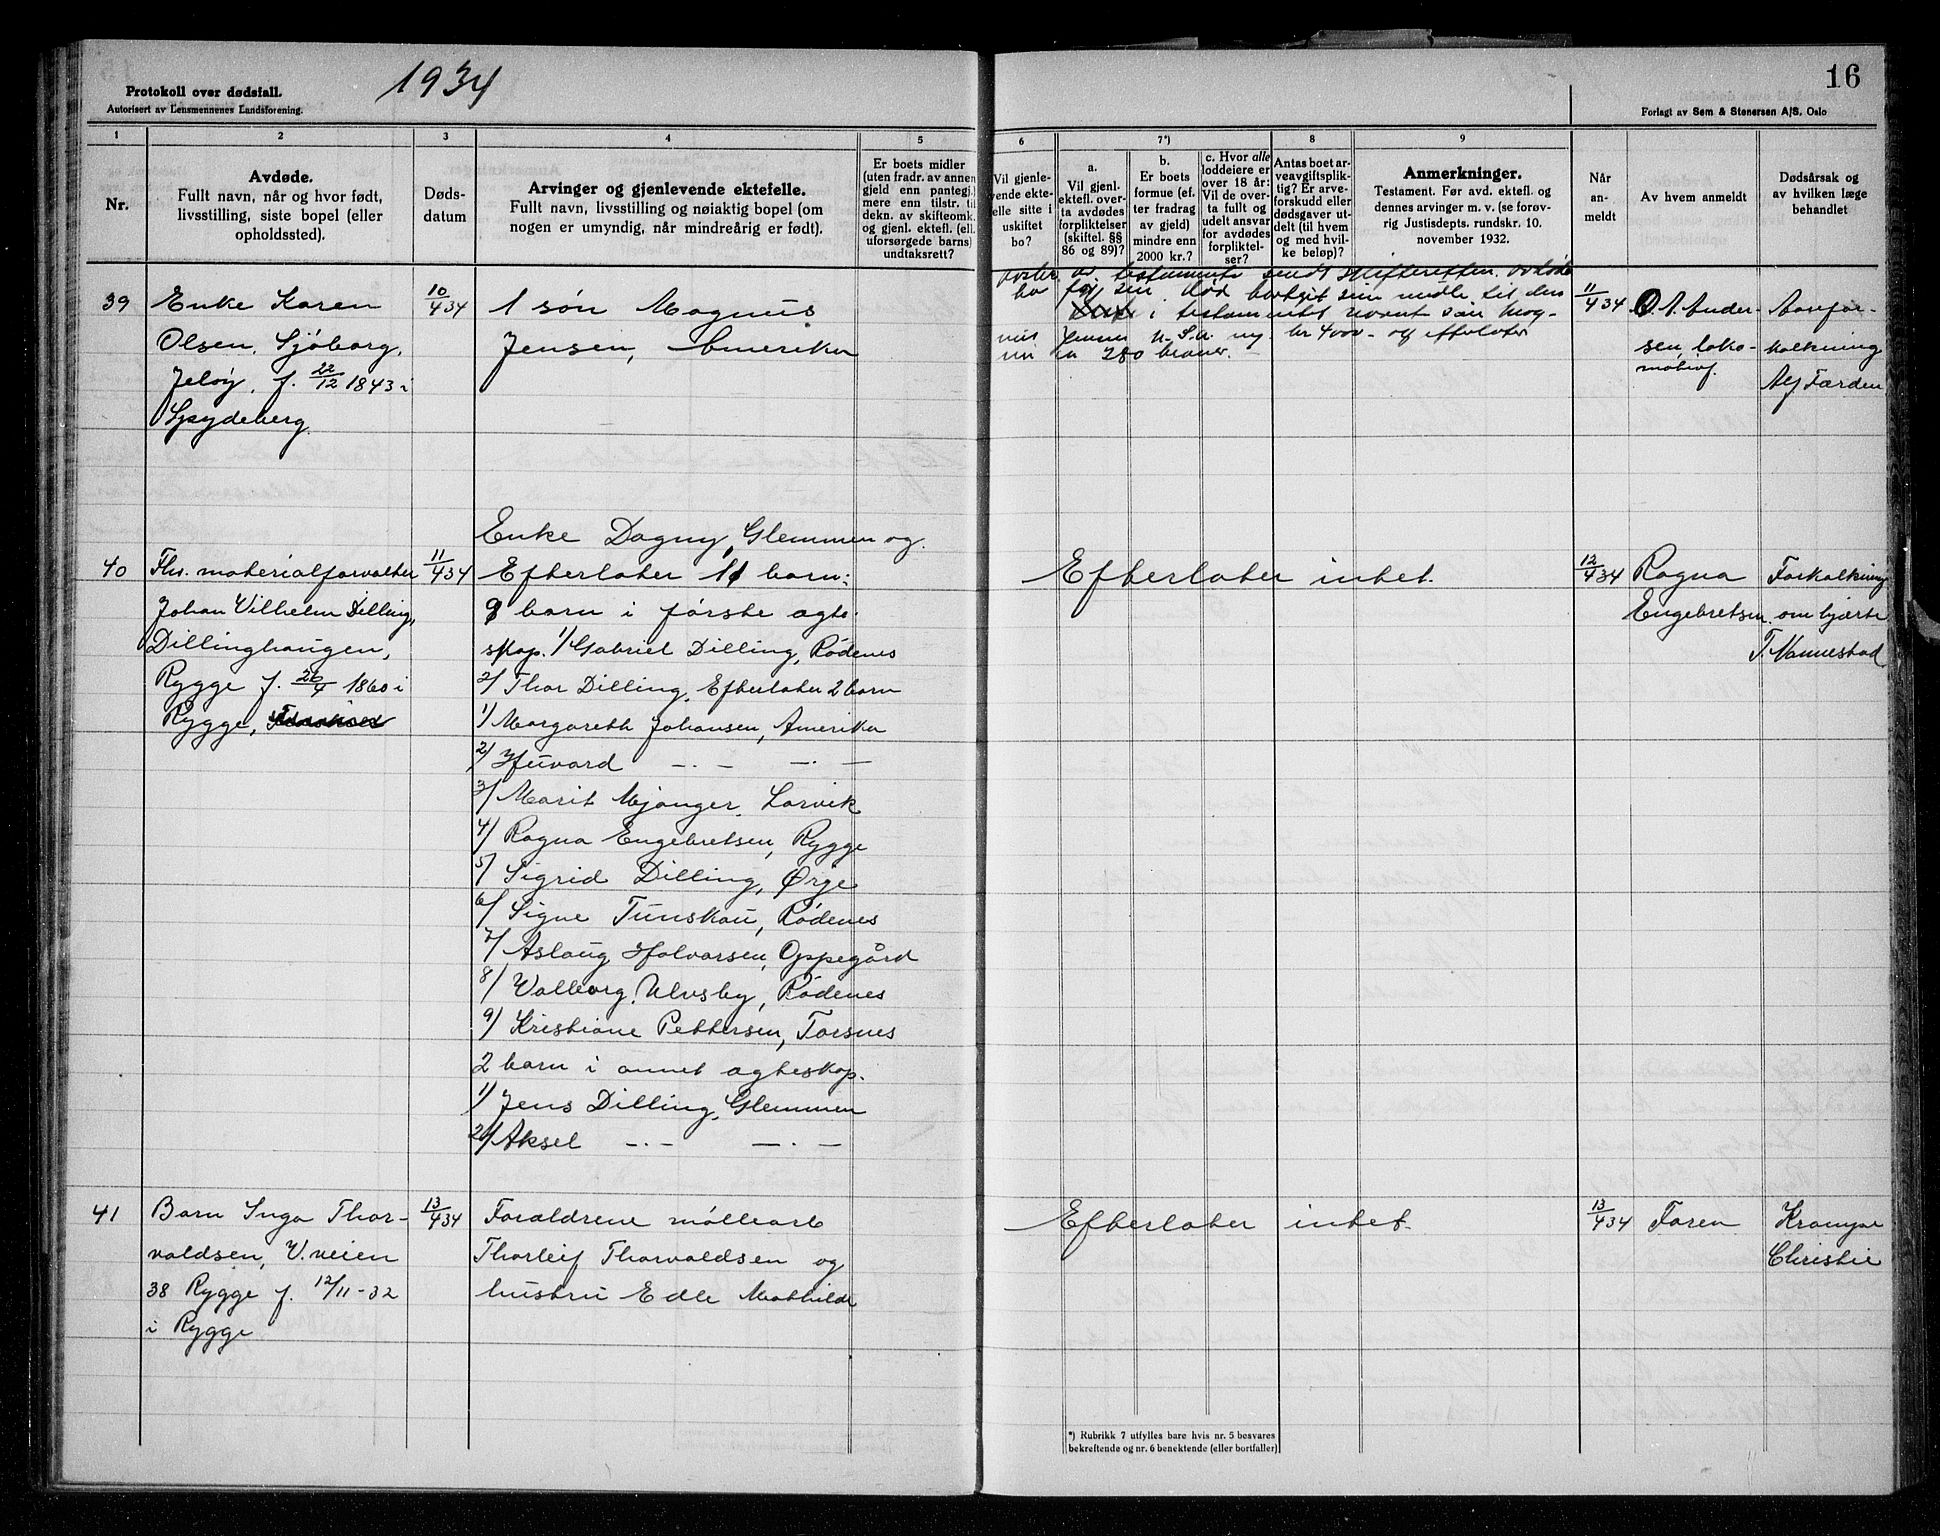 1934
16
Protokoll over dødsfall.
Autorisert av Lensmennenes Landsforening.
Forlagt av Sem & Stenersen A/S. Oslo
1 2 3 4 5 6 7*) 8 9
Nr.
Avdøde.
Fullt navn, når og hvor født,
livsstilling, siste bopel (eller
opholdssted).
Døds-
datum
Arvinger og gjenlevende ektefelle.
Fullt navn, livsstilling og nøiaktig bopel (om
nogen er umyndig, når mindreårig er født).
Er boets midler
(uten fradr. av annen
gjeld enn pantegj.)
mere enn tilstr. til
dekn. av skifteomk.
og gjenl. ektefl. (ell.
uforsørgede barns)
undtaksrett?
Vil gjenle-
vende ekte-
felle sitte i
uskiftet
bo?
a.
Vil gjenl.
ektefl. over-
ta avdødes
forpliktelser
(skiftel. §§
86 og 89)?
b.
Er boets
formue (ef-
ter fradrag
av gjeld)
mindre enn
2000 kr.?
c. Hvor alle
loddeiere er
over 18 år:
Vil de over-
ta fullt og
udelt ansvar
for avdødes
forpliktel-
ser?
Antas boet ar-
veavgiftsplik-
tig? Er arve-
forskudd eller
dødsgaver ut-
delt (til hvem
og med hvil-
ke beløp)?
Anmerkninger.
Testament. Før avd. ektefl. og
dennes arvinger m. v. (se forøv-
rig Justisdepts. rundskr. 10.
november 1932.
Når
an-
meldt
Av hvem anmeldt
Dødsårsak og
av hvilken læge
behandlet
39
Enke Karen
Olsen, Sjöborg,
Jelöy, f. 22/12 1843 i
Spydeberg.
10/4 34
1 søn Magnus
Jensen, Amerika
av testamente sendt skifteretten.
i testamentet nevnt søn Mag-
U.S.A. kr 4000 - og efterlater
280 kroner. -
11/4 34
A. Ander-
sen, loko-
motivf.
Aarefor-
kalkning
Alf Færden
40
Fhv. materialforvalter
Johan Vilhelm Dilling,
Dillinghaugen,
Rygge f. 26/4 1860 i
Rygge,
11/4 34
Enke Dagny, Glemmen og
Efterlater 11 barn:
9 barn i første ægte-
skap. 1/ Gabriel Dilling, Rödenes
2/ Thor Dilling, Efterlater 2 barn
1/ Margareth Johansen, Amerika
2/ Huvard — . — — . —
3/ Marit Mjanger, Larvik
4/ Ragna Engebretsen, Rygge
5/ Sigrid Dilling, Ørje
6/ Signe Tunskau, Rödenes
7/ Aslaug Halvorsen, Oppegård
8/ Valborg Ulvsby, Rödenes
9/ Kristiane Pettersen, Torsnes
2 barn i annet ægteskap.
1/ Jens Dilling, Glemmen
2/ Aksel — . — — . —
Efterlater intet.
12/4 34
Ragna
Engebretsen
Forkalkning
om hjærte
T. Nannestad
41
Barn Inga Thor-
valdsen, V.veien
38 Rygge f. 12/11-32
i Rygge
13/4 34
Forældrene møllearb
Thorleif Thorvaldsen og
hustru Edle Mathilde
Efterlater intet.
13/4 34
Faren
Krampe
Christie
*) Rubrikk 7 utfylles bare hvis nr. 5 besvares
bekreftende og nr. 6 benektende (eller bortfaller)